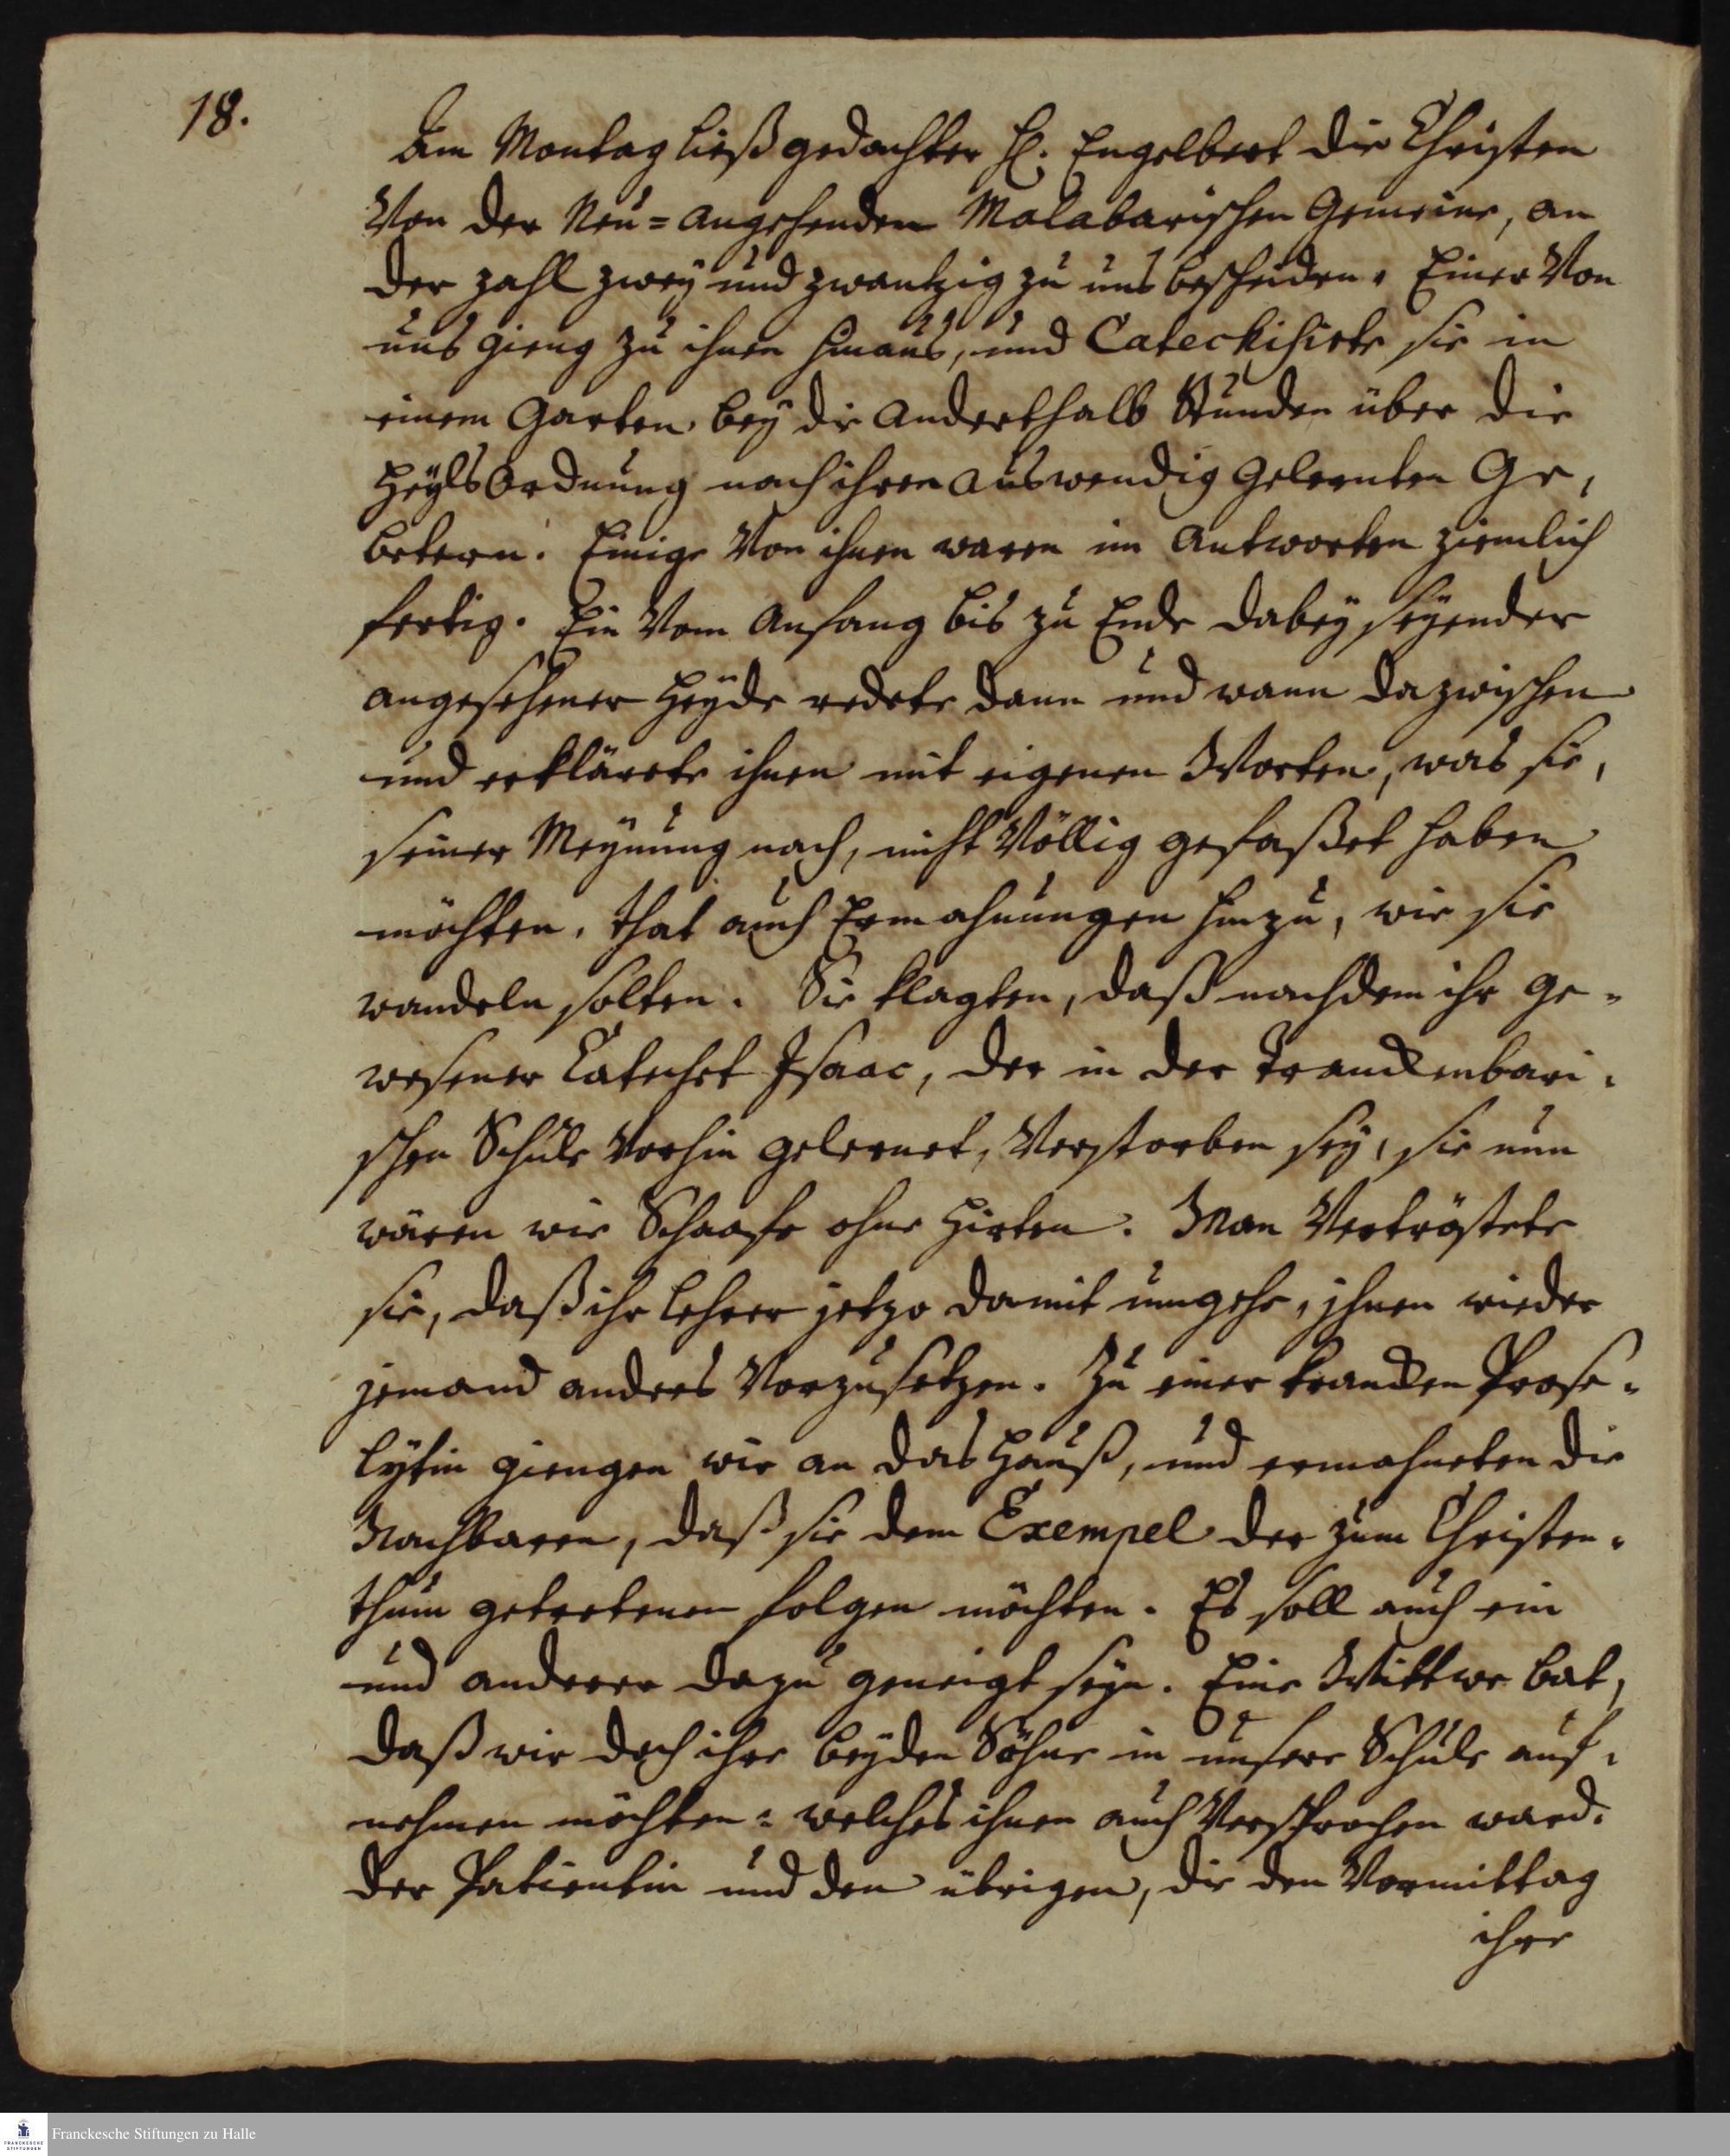 18.
Am Montag ließ gedachter H. Engelbert die Christen
Von der Neu=angehenden Malabarischen Gemeine, an
der zahl zwey und zwantzig zu uns bescheiden. Einer Von
uns gieng zu ihnen hinaus, und Catechisirte sie in
einem Garten bey die anderthalb Stunden über die
Heyls Ordnung nach ihren auswendig gelernten Ge,
betern. Einige Von ihnen waren im Antworten ziemlich
fertig. Ein Vom Anfang bis zu Ende dabey seyender
angesehener Heyde redete dann und wann dazwischen
und erklärete ihnen mit eigenen Worten, was sie,
seiner Meynung nach, nicht Völlig gefaßet haben
möchten, that auch Ermahnungen hinzu, wie sie
wandeln solten. Sie klagten, daß nachdem ihr ge-
wesener Catechet Isaac, der in der Tranckenbari-
schen Schule Vorhin gelernet, Verstorben sey, sie nun
wären wie Schaafe ohne Hirten. Man Vertröstete
sie, daß ihr Lehrer jetzo damit umgehe, ihnen wieder
jemand anders Vorzusetzen. Zu einer krancken Prose-
lytin giengen wir an das Hauß, und ermahneten die
Nachbaren, daß sie dem Exempel der zum Christen-
thum getretenen folgen möchten. Es soll auch ein
und anderer dazu geneigt seyn. Eine Wittwe bat,
daß wir doch ihre beyden Söhne in unsere Schule auf-
nehmen möchten: welches ihnen auch Versprochen ward.
der Patientin und den übrigen, die den Vormittag
ihre
Franckesche Stiftungen zu Halle
FRANCKESCHE
STIFTUNGEN